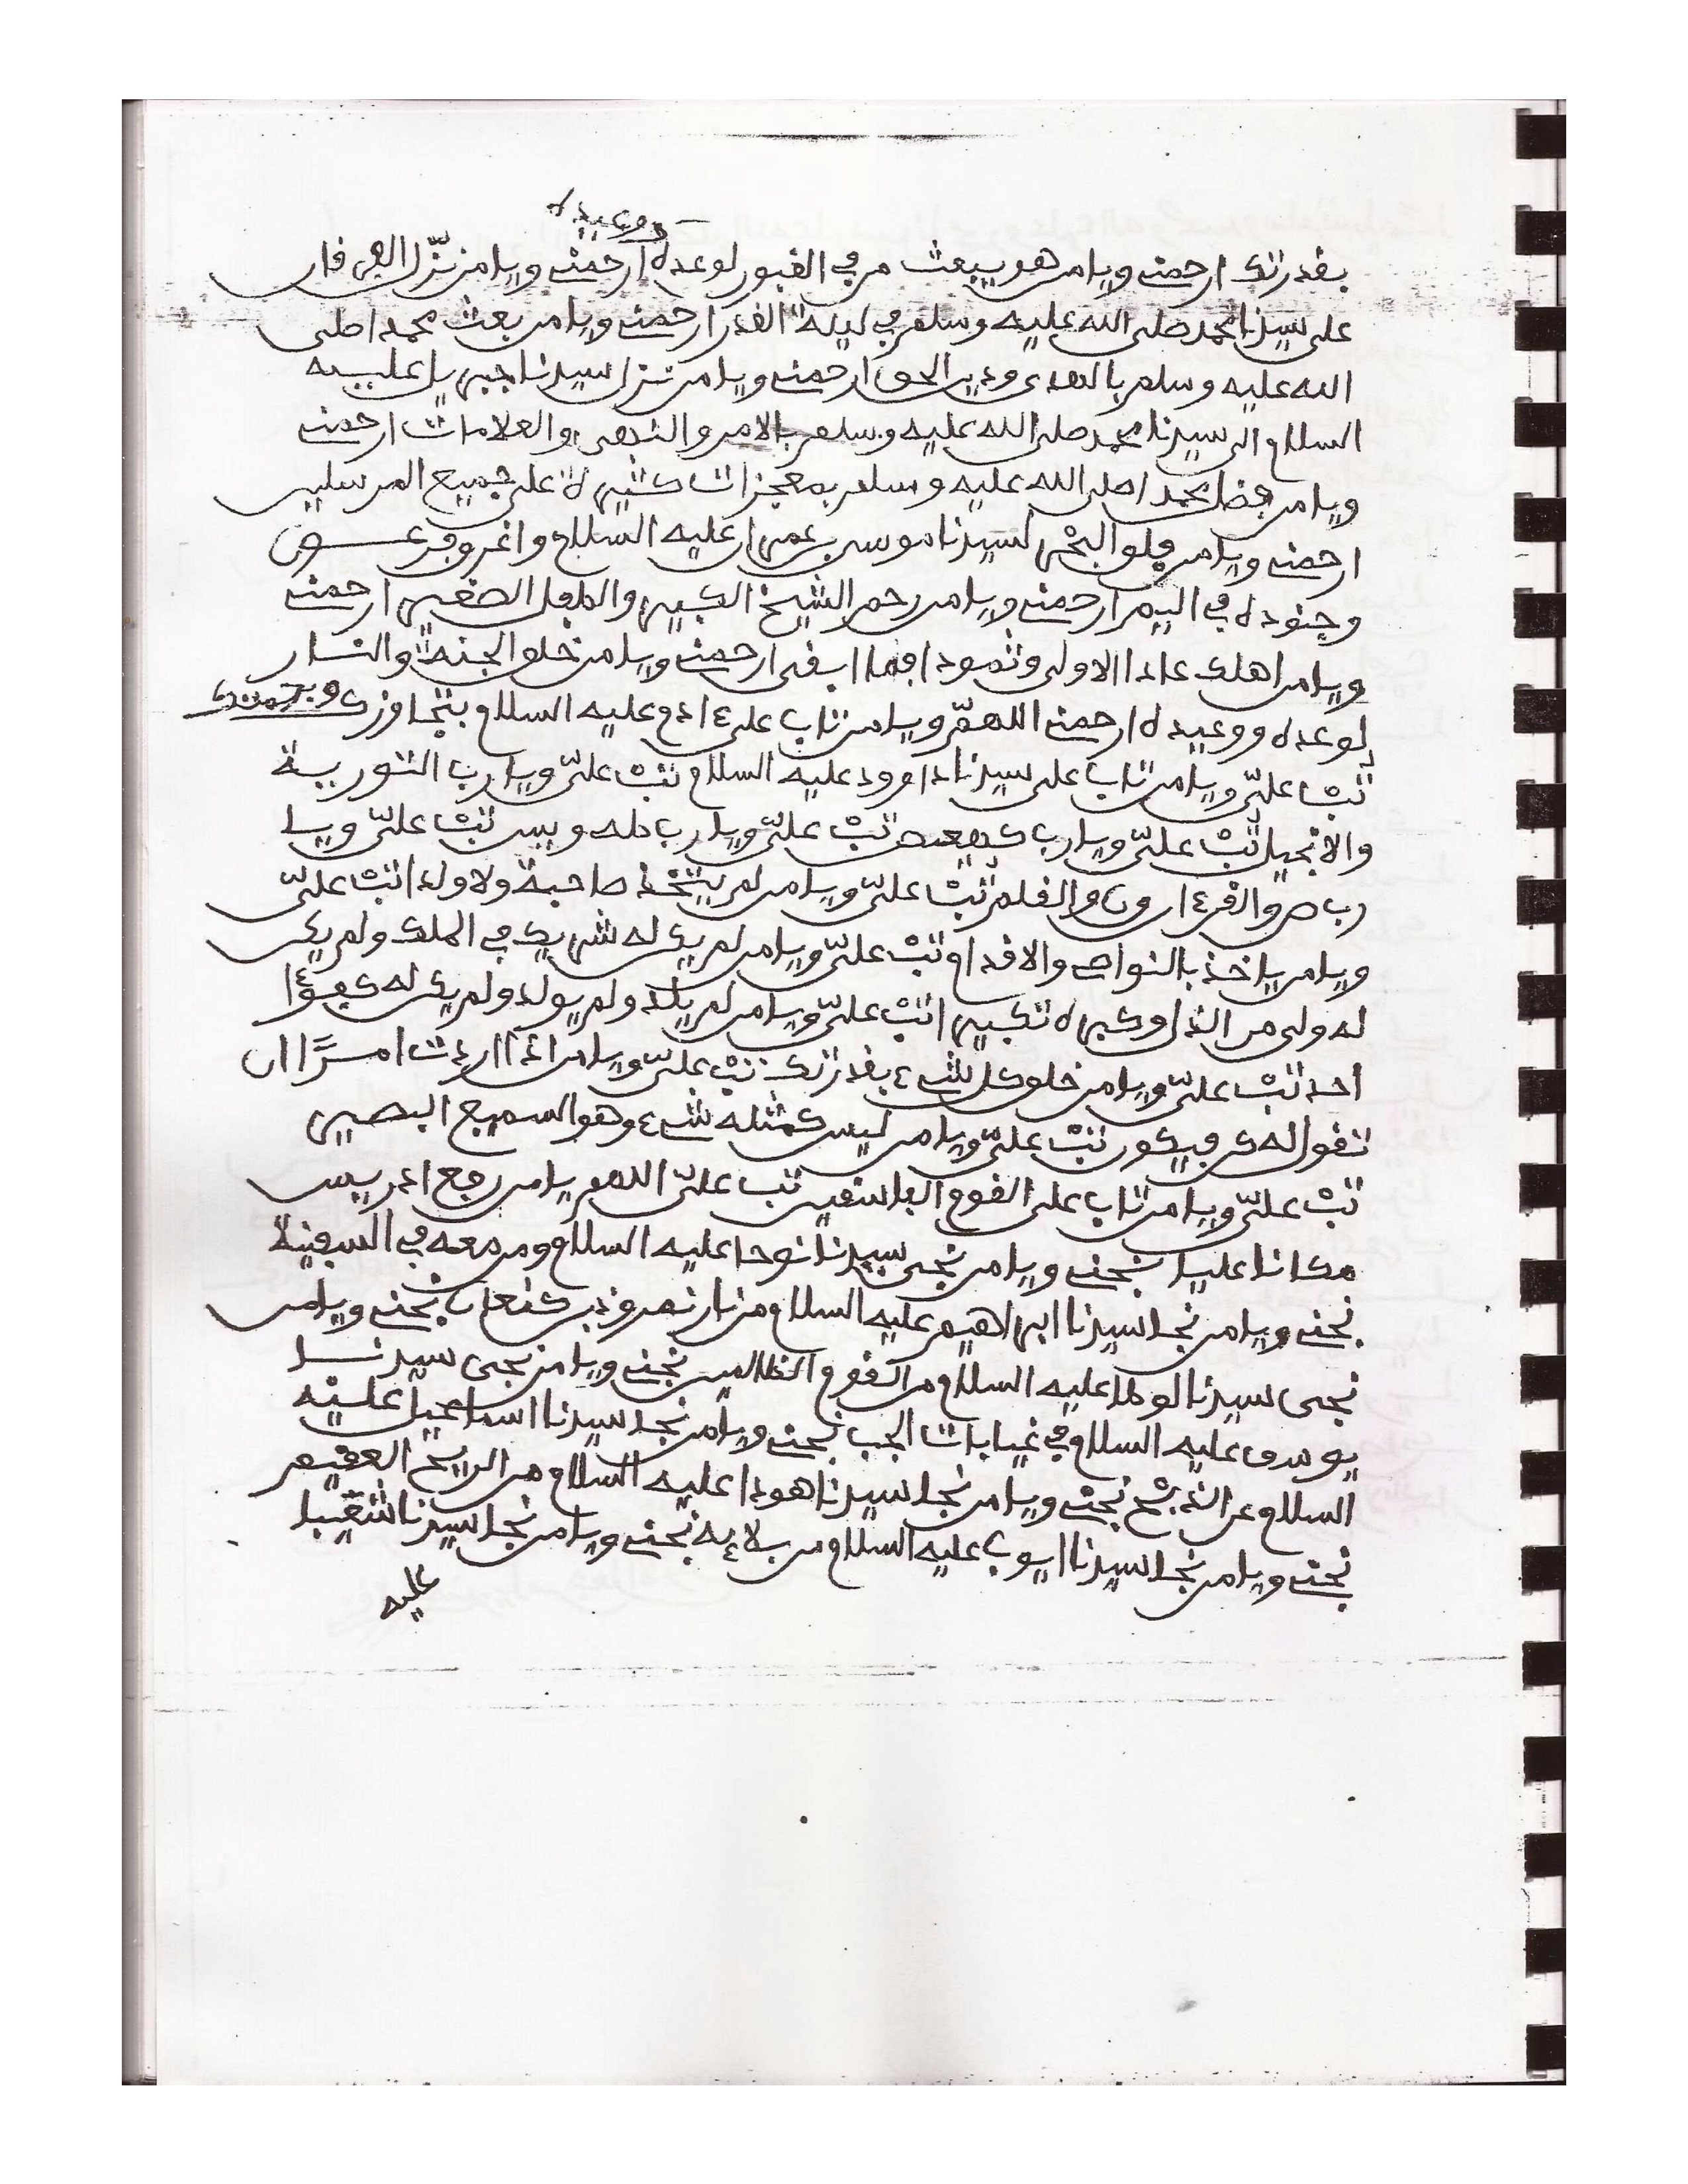 ووعيده
بقدرتك ارحمنے ويامن هو يبعث من في القبور لوعده ارحمنے ويامن نزّل الفرقان
على سيدنا محمد صلى الله عليه وسلم في ليلة القدر ارحمنے ويامن بعث محمدا صلى
الله عليه وسلم بالهدى ودين الحق ارحمنے ويامن نزل سيدنا جبريل عليه
السلام الى سيدنا محمد صلى الله عليه وسلم بالامر والنهى والعلامات ارحمنے
ويامن فضل محمدا صلى الله عليه وسلم بمعجزات كثيرة على جميع المرسلين
ارحمنے ويامن فلق البحر لسيدنا موسى بن عمران عليه السلام واغرق فرعون
وجنوده في اليم ارحمنے ويامن رحم الشيخ الكبير والطفل الصغير ارحمنے
ويامن اهلك عادا الاولى وثمودا فما ابقى ارحمنے ويامن خلق الجنة والنار
لوعده ووعيده ارحمنے اللهمّ ويامن تاب على ءادم عليه السلام بتجاوزك وبرحمتك
تبْ علىّ ويامن تاب على سيدنا داوود عليه السلام تبْ علىّ ويارب التورية
والانجيل تبْ علىّ ويارب كهيعص تبْ علىّ ويارب طه ويس تبْ علىّ ويا
رب ص والقرءان ون والقلم تبْ علىّ ويامن لم يتخذ صاحبة ولا ولدا تبْ علىّ
ويامن ياخذ بالنواص والاقدام تبْ علىّ ويامن لم يكن له شريك في الملك ولم يكن
له ولى من الذل وكبره تكبيرا تبْ علىّ ويامن لم يلد ولم يولد ولم يكن له كفوءا
احد تبْ علىّ ويامن خلق كل شےء بقدرتك تبْ علىّ ويامن اذا اردت امرًا ان
تقول له كن فيكون تبْ علىّ ويامن ليس كمثله شےء وهو السميع البصير
تبْ علىّ ويامن تاب على القوم الفاسقين تب علىّ اللهم يامن رفع ادريس
مكانا عليا نجنے ويامن نجى سيدنا نوحا عليه السلام ومن معه في السفينة
نجنے ويامن نجا سيدنا ابراهيم عليه السلام من نار نمروذ بن كنعان نجنے ويامن
نجى سيدنا لوطا عليه السلام من القوم الظالمين نجنے ويامن نجى سيدنا
يوسف عليه السلام في غيابات الجب نجنے ويامن نجا سيدنا اسماعيل عليه
السلام عن الذبح نجنے ويامن نجا سيدنا هودا عليه السلام من الريح العقيم
نجنے ويامن نجا سيدنا ايوب عليه السلام من بلاءه نجنے ويامن نجا سيدنا شعيبا
عليه